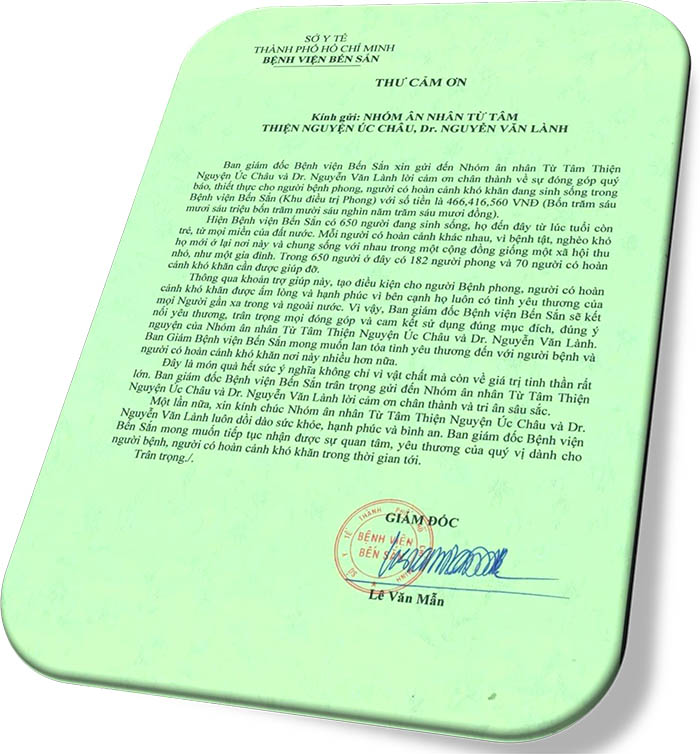 SỞ Y TẾ
THÀNH PHỐ HỒ CHÍ MINH
BỆNH VIỆN BẾN SẮN
THƯ CẢM ƠN
Kính gửi: NHÓM ÂN NHÂN TỪ TÂM
THIỆN NGUYỆN ÚC CHÂU, Dr. NGUYỄN VĂN LÀNH
Ban giám đốc Bệnh viện Bến Sắn xin gửi đến Nhóm ân nhân Từ Tâm Thiện
Nguyện Úc Châu và Dr. Nguyễn Văn Lành lời cảm ơn chân thành về sự đóng góp quý
báo, thiết thực cho người bệnh phong, người có hoàn cảnh khó khăn đang sinh sống trong
Bệnh viện Bến Sắn (Khu điều trị Phong) với số tiền là 466,416,560 VNĐ (Bốn trăm sáu
mươi sáu triệu bốn trăm mười sáu nghìn năm trăm sáu mươi đồng).
Hiện Bệnh viện Bến Sắn có 650 người đang sinh sống, họ đến đây từ lúc tuổi còn
trẻ, từ mọi miền của đất nước. Mỗi người có hoàn cảnh khác nhau, vì bệnh tật, nghèo khó
họ mới ở lại nơi này và chung sống với nhau trong một cộng đồng giống một xã hội thu
nhỏ, như một gia đình. Trong 650 người ở đây có 182 người phong và 70 người có hoàn
cảnh khó khăn cần được giúp đỡ.
Thông qua khoản trợ giúp này, tạo điều kiện cho người Bệnh phong, người có hoàn
cảnh khó khăn được ấm lòng và hạnh phúc vì bên cạnh họ luôn có tình yêu thương của
mọi Người gần xa trong và ngoài nước. Vì vậy, Ban giám đốc Bệnh viện Bến Sắn sẽ kết
nối yêu thương, trân trọng mọi đóng góp và cam kết sử dụng đúng mục đích, đúng ý
nguyện của Nhóm ân nhân Từ Tâm Thiện Nguyện Úc Châu và Dr. Nguyễn Văn Lành.
Ban Giám Bệnh viện Bến Sắn mong muốn lan tỏa tình yêu thương đến với người bệnh và
người có hoàn cảnh khó khăn nơi này nhiều hơn nữa.
Đây là món quà hết sức ý nghĩa không chỉ vì vật chất mà còn về giá trị tinh thần rất
lớn. Ban giám đốc Bệnh viện Bến Sắn trân trọng gửi đến Nhóm ân nhân Từ Tâm Thiện
Nguyện Úc Châu và Dr. Nguyễn Văn Lành lời cảm ơn chân thành và tri ân sâu sắc.
Một lần nữa, xin kính chúc Nhóm ân nhân Từ Tâm Thiện Nguyện Úc Châu và Dr.
Nguyễn Văn Lành luôn dồi dào sức khỏe, hạnh phúc và bình an. Ban giám đốc Bệnh viện
Bến Sắn mong muốn tiếp tục nhận được sự quan tâm, yêu thương của quý vị dành cho
người bệnh, người có hoàn cảnh khó khăn trong thời gian tới.
Trân trọng./.
GIÁM ĐỐC
BỆNH VIỆN
BẾN SẮN
Lê Văn Mẫn